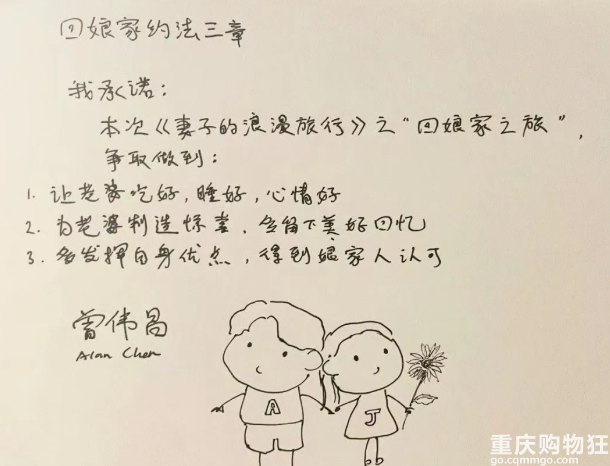 回娘家约法三章
我承诺：
本次《妻子的浪漫旅行》之“回娘家之旅”，
争取做到：
1. 让老婆吃好，睡好，心情好
2. 为老婆制造惊喜，多留下美好回忆
3. 多发挥自身优点，得到娘家人认可
曾伟昌
Alan Chen
A
J
重庆购物狂
go.cqmmgo.com